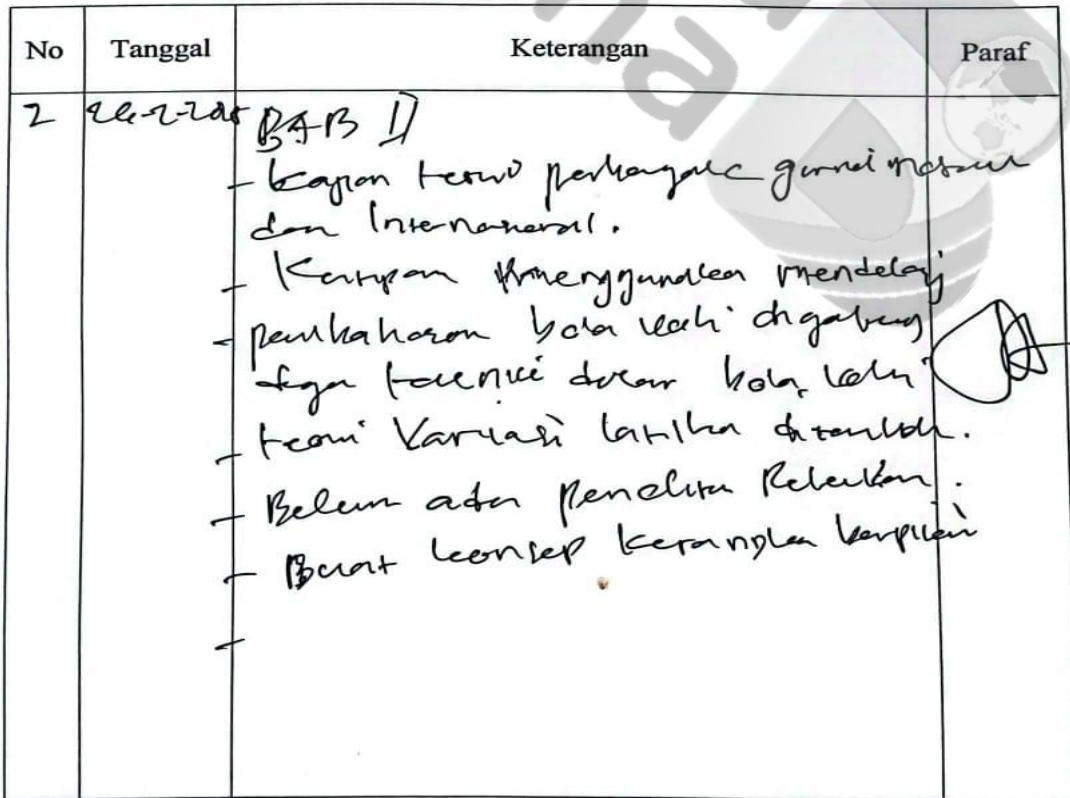 No Tanggal Keterangan Paraf
2 BAB II
- Kajian teori perbanyak jurnal
dan Internasional.
- Kutipan menggunakan mendeley
- pembahasan bola voli digabung
dengan teknik dasar bola voli
- teori Variasi latihan ditambah.
- Belum ada Penelitian Relevan.
- Buat konsep kerangka berpikir
-